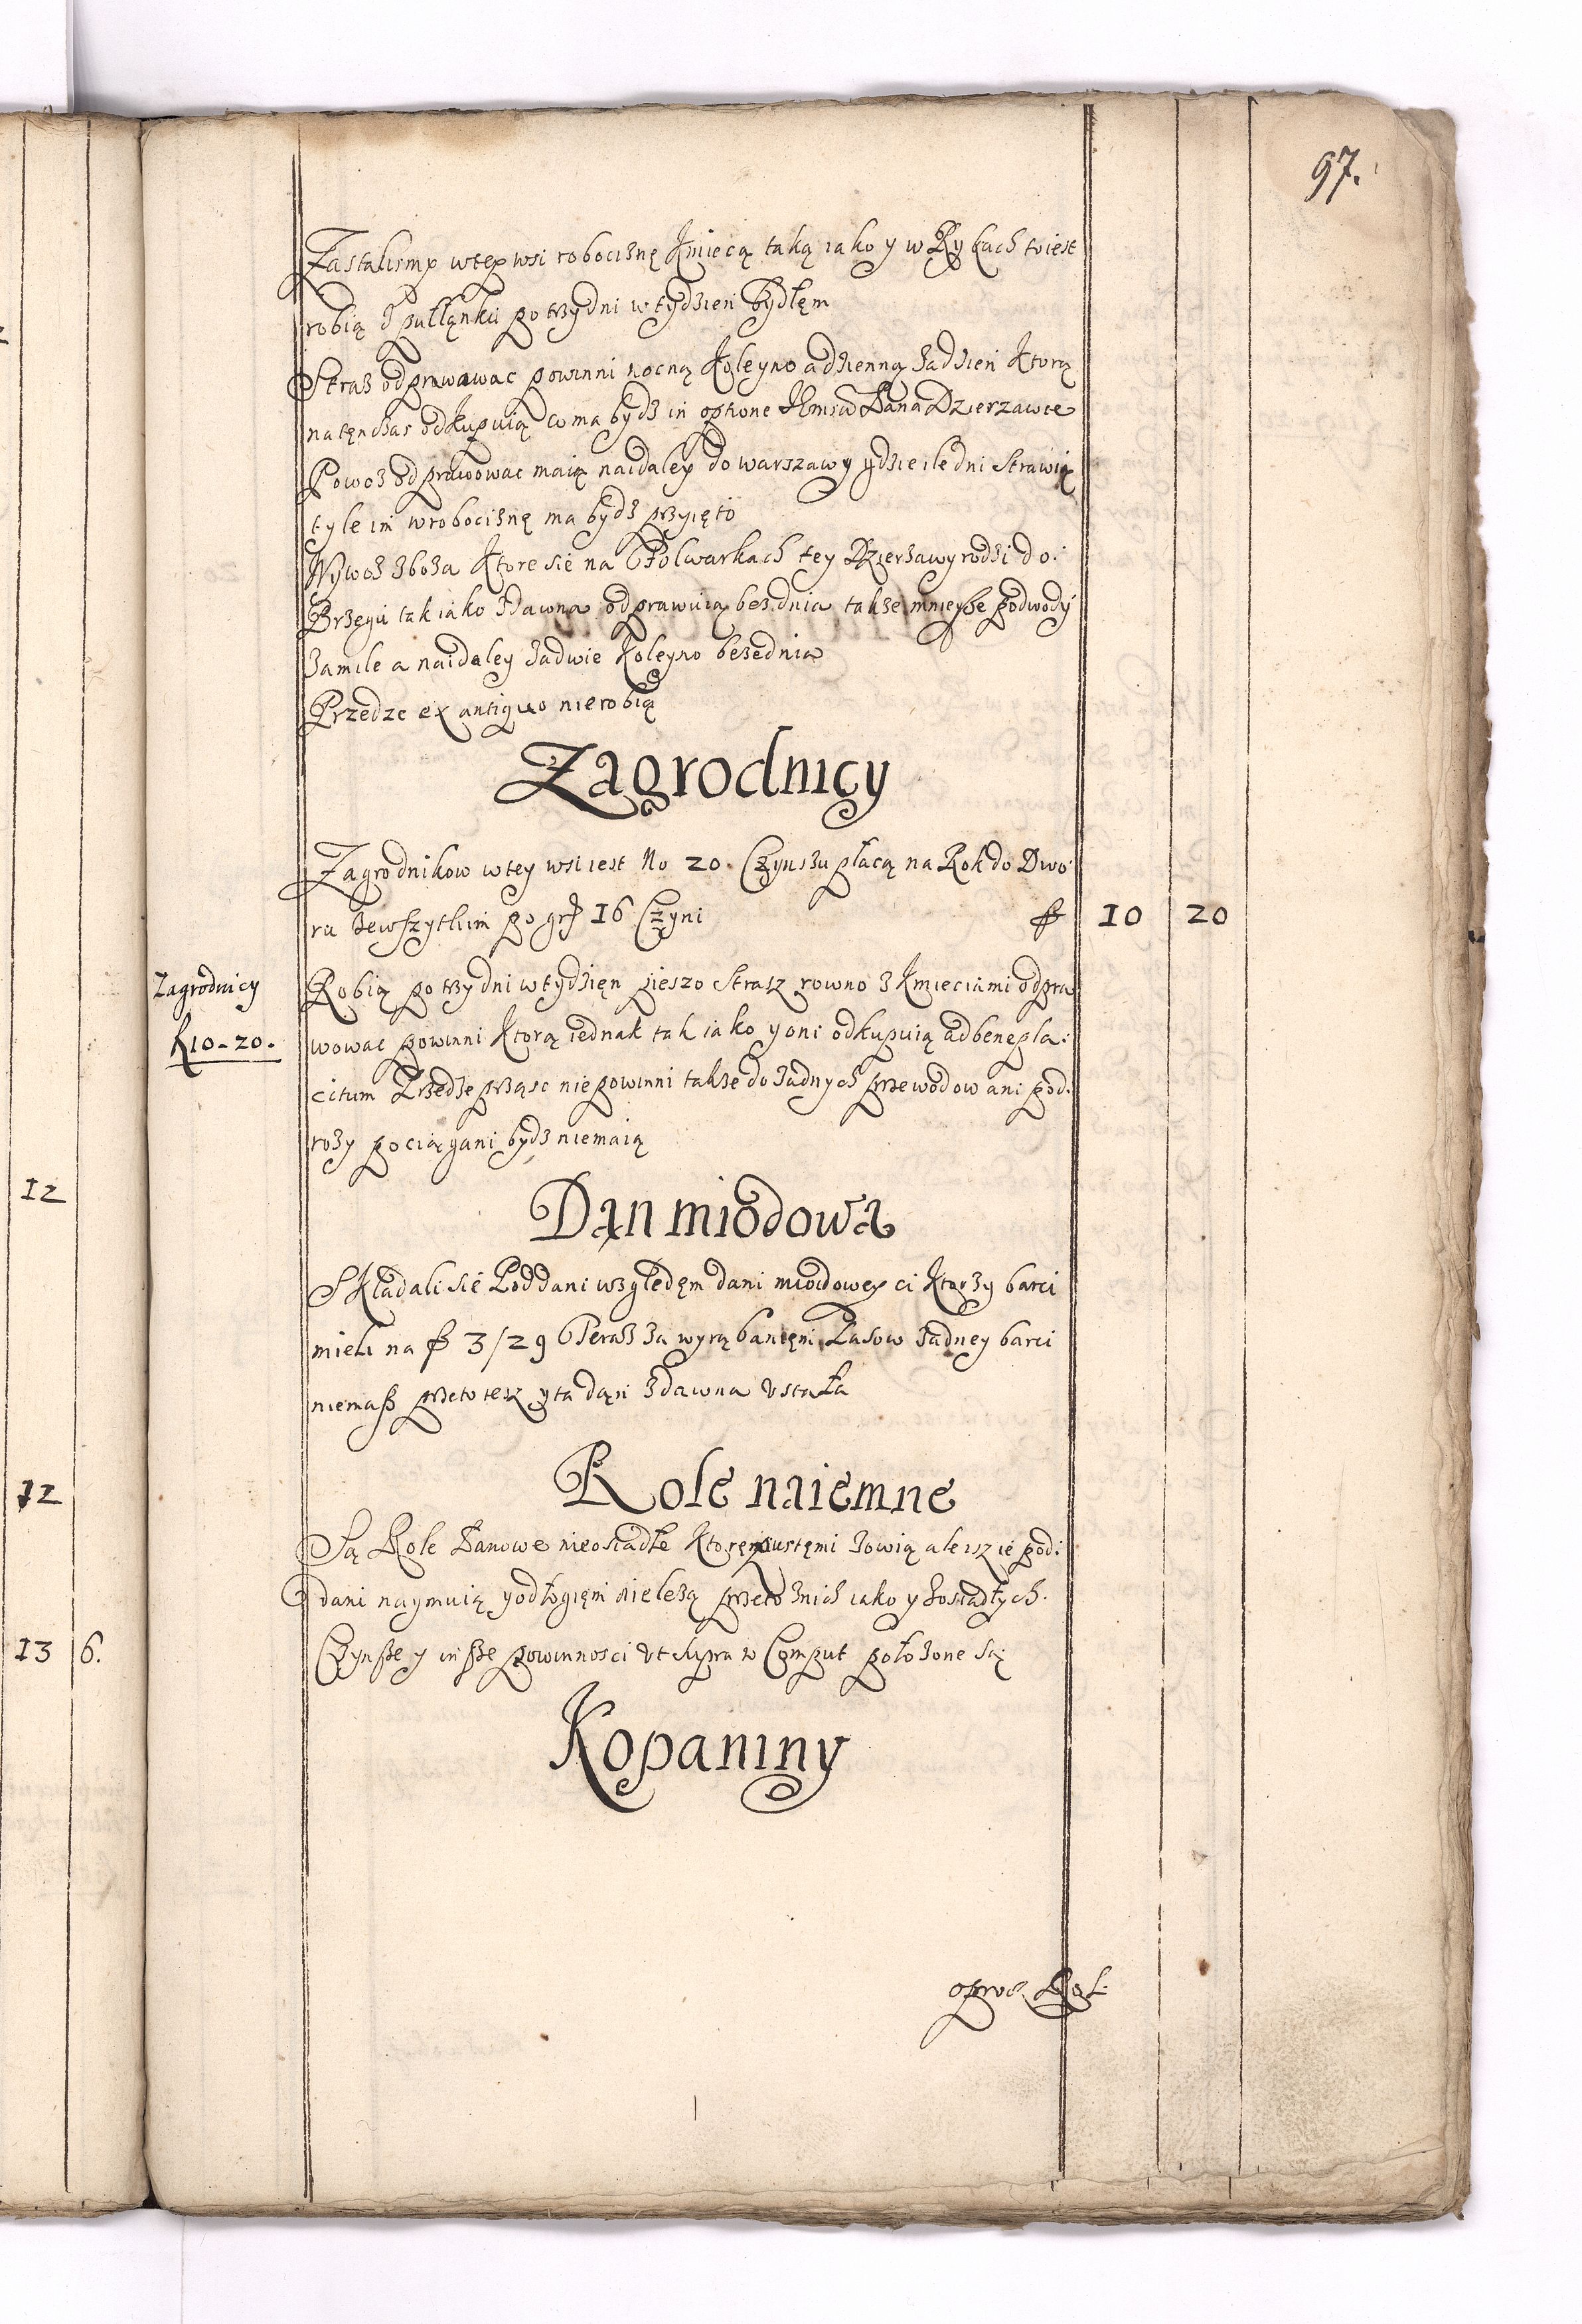 97.
Zastalismy wtey wsi robociznę Kmiecą taką iako y w Rykach to iest
robią z pułłanku po trzy dni w tydzień bydłęm
Straz odprawawac powinni nocną Koleyno a dzienną za dzień Ktorą
natęnczas odkupuią co ma bydz in optione Pana Dzierzawce
Powoz odprawowac maią naidaley do warszawy gdzie ile dni Strawią
tyle im w robociznę ma bydz przyięto
Wywoz zboza Ktore sie na Folwarkach tey Dzierzawy rodzi do:
Brzegu tak iako zdawna odprawuią bez dnia takze mnieysze podwody
za mile a naidaley za dwie Koleyno bezednia
Przedze ex antiquo nierobią
Zagrodnicy
Zagrodnikow w tey wsi iest No 20. Czynszu płacą na Rok do Dwo
ru zewszytkim po gr 16 Czyni f 10 20
Zagrodnicy
f 10-20.
Robią po trzy dni w tydzięn pieszo Strasz rowno z Kmieciami odpra
wowac powinni Ktorą iednak tak iako y oni odkupuią ad benepla:
citum Przedze prząsc nie powinni takze do zadnych przewodow ani pod:
rozy pociągani bydz niemaią
Dąn miodowa
Składali się Poddani względęm dani miodowey ci Ktorzy barci
mieli na f 3/29 Teraz za wyrąbanięm Lasow zadney barci
niemasz przeto tesz y ta dąn zdawna ustała
Role naiemne
Są Role Łanowe nieosiadłe Ktore pustęmi zowią ale isz ie pod:
dani naymuią y odłogięm nie lezą przeto znich iako y z osiadłych.
Czynsze y insze powinnosci ut supra w Comput połozone są
Kopaniny
oprocz Rol:
12
12
13 6.